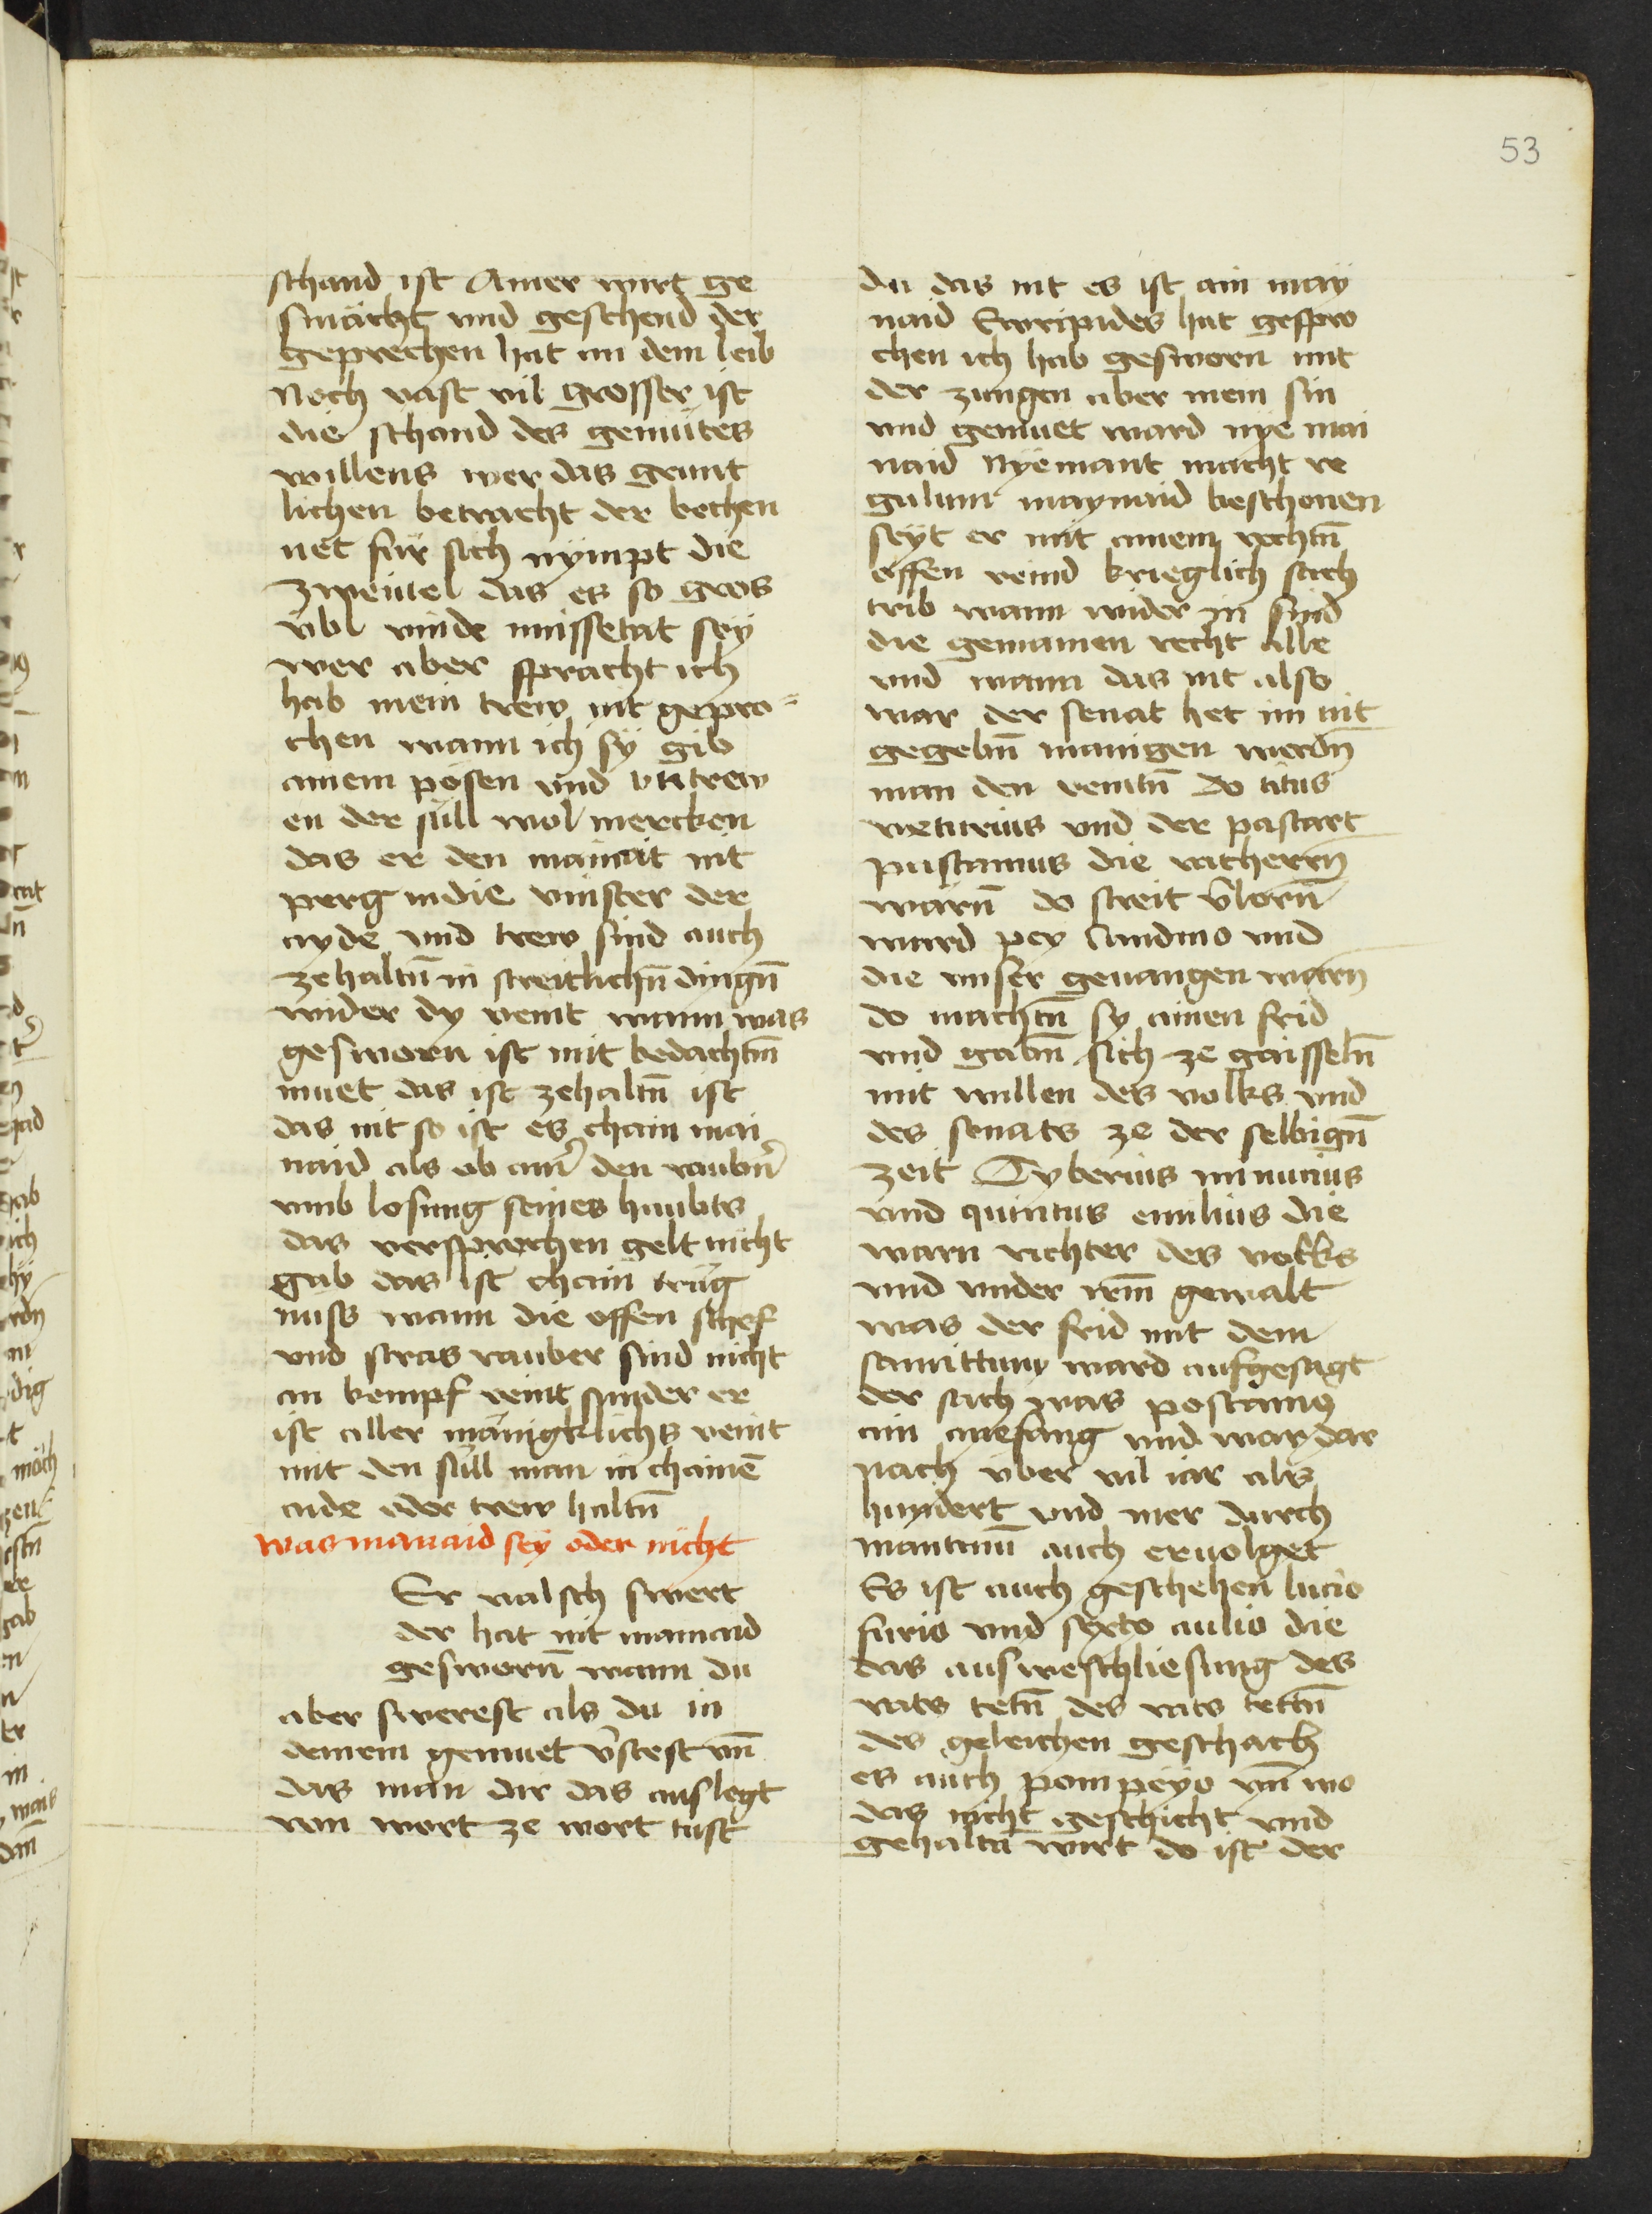 53
schand ist Ainer wirt ge
smächt vnd geschend der
geprechen hat an dem leib
Noch vast vil grosser ist
die schand des gemütes
willens wer das grunt
lichen betracht der bechen
net für sich nympt die
zweütel das es so gros
vbl vinde missetat sey
wer aber spracht ich
hab mein trew nit gepro=
chen wann ich sy gib
ainem pösen vnd vntrew
en der süll wol mercken
das er den mainait nit
perg in die vinster der
ayde vnd trew sind auch
zehaltn̄ in streitlichn̄ dingn̄
wider dy veint wann was
gesworn ist mit bedachtm̄
muet das ist zehaltn̄ ist
das nit so ist es chain mai
naid als ob ainr̄ den raubnr̄
vmb losung seines haubts
das versprochen gelt nicht
gab das ist chain trüg
nuss wann die offen schef
vnd stras rauber sind nicht
an kempf veint sunder er
ist aller mänigklichs veint
mit den süll man in chainē
aide oder trew haltn̄
was mainaid sey oder nicht
Er valsch swert
der hat nit mainaid
gesworn̄ wann du
aber swerest als du in
deinem gemuet v̄stest vn̄
das man dir das auslegt
von wort ze wort tust
du das nit es ist ain may
naid Ewripides hat gespro
chen ich hab gesworn mit
der zungen aber mein sin
vnd gemuet ward nye mai
naid Nyemant macht re
gulum maynaid beschonen
seyt er mit ainem rechtn̄
offen veind krieglich sach
trib wann wider in sind
die gemainen recht alle
vnd wann das nit also
war der senat het im nit
gegebm̄ manigen werdn̄
man den veintn̄ do titus
veturius vnd der pastart
pustamus die ratherrn̄
warn̄ do streit v̄lorn̄
ward pey Caudino vnd
die vnser geuangen warn̄
do machtn̄ sy ainen frid
vnd gabm̄ sich ze gaisseln̄
mit willen des volks vnd
des senats ze der selbign̄
zeit Tyberius minucius
vnd quintus emilius die
warn richter des volks
vnd vnder irm̄ gewalt
was der frid mit dem
samittum ward aufgesagt
der sach was postamus
ain anefang vnd war dar
nach über vil iar als
hundert vnd mer durch
mantanū auch eruolget
Es ist auch geschehen lucio
furio vnd sexto aulio die
das ausweschliesung des
rats tetn̄ des rats tettn̄
des geleichen geschach
es auch pompeyo vn̄ wo
das nicht geschicht vnd
gehaltn̄ wirt do ist der